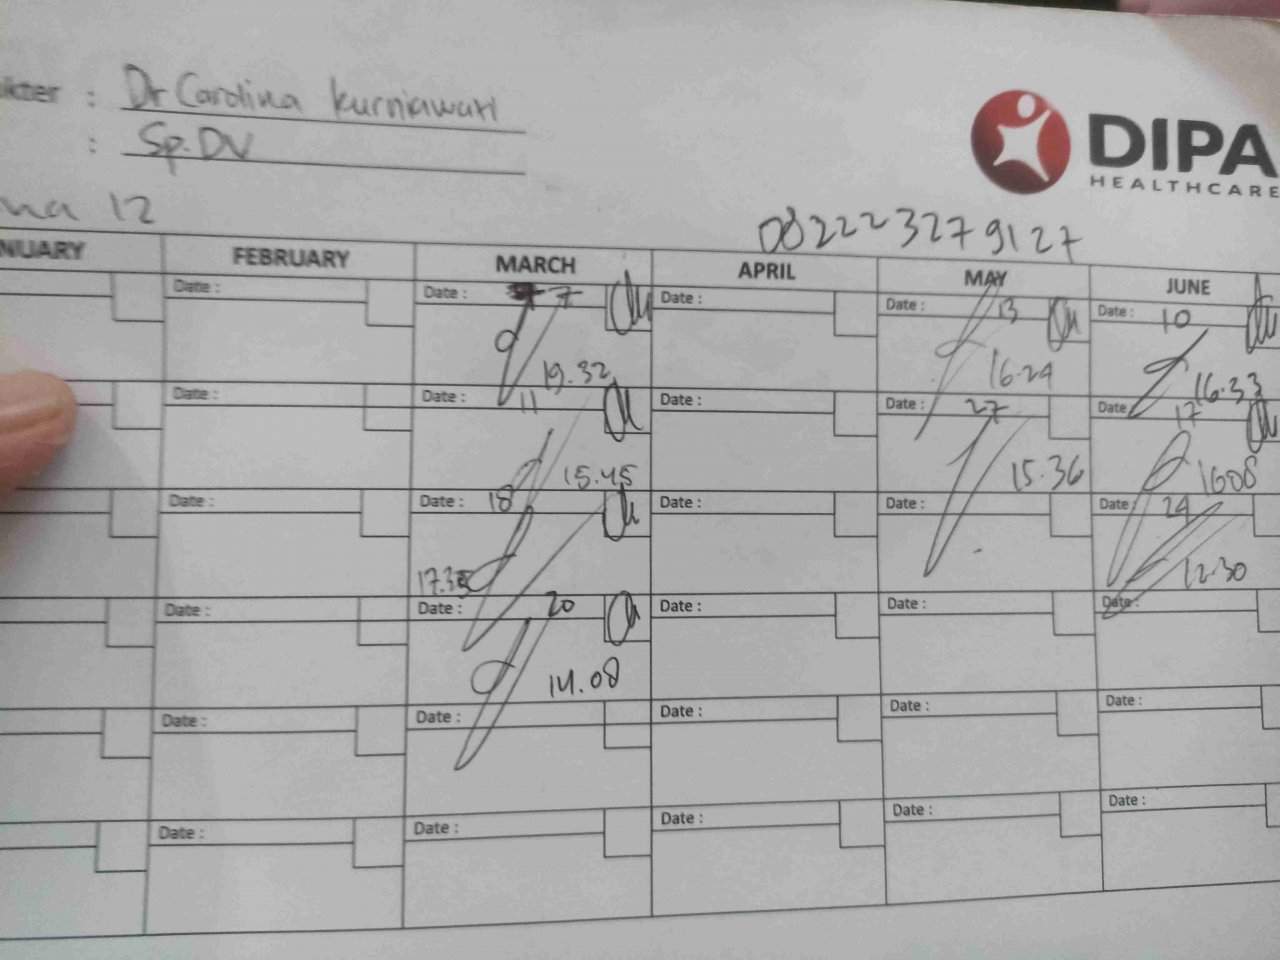 kter : Dr Carolina Kurniawati
: Sp.DV
na 12
DIPA
HEALTHCARE
082223279127
NUARY FEBRUARY MARCH APRIL MAY JUNE
Date : Date : 7 Date : Date : 13 Date : 10
19.32 16.29 16.33
Date : Date : 11 Date : Date : 27 Date 17
15.45 15.36 1608
Date : Date : 18 Date : Date : Date : 24
17.35 12.30
Date : Date : 20 Date : Date : Date :
14.08
Date : Date : Date : Date : Date :
Date : Date : Date : Date : Date :